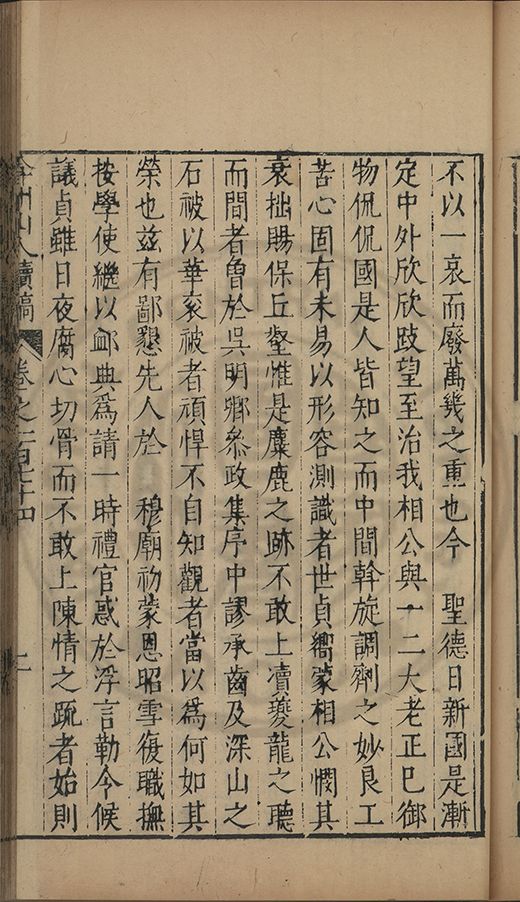 不以一哀而廢萬幾之重也今　聖德日新國是漸
定中外欣欣跂望至治我相公與一二大老正已御
物侃侃國是人皆知之而中間斡旋調劑之妙良工
苦心固有未易以形容測識者世貞嚮蒙相公憫其
衰拙賜保丘壑惟是麋鹿之跡不敢上凟夔龍之聽
而間者曾於吳明卿參政集序中謬承齒及深山之
石被以華衮被者頑悍不自知觀者當以為何如其
榮也兹有鄙懇先人於　穆廟初蒙恩昭雪復職撫
按學使繼以䘏典爲請一時禮官惑於浮言勒令候
議貞雖日夜腐心切骨而不敢上陳情之疏者始則
弇州山人續稿　卷之一百七十四　二